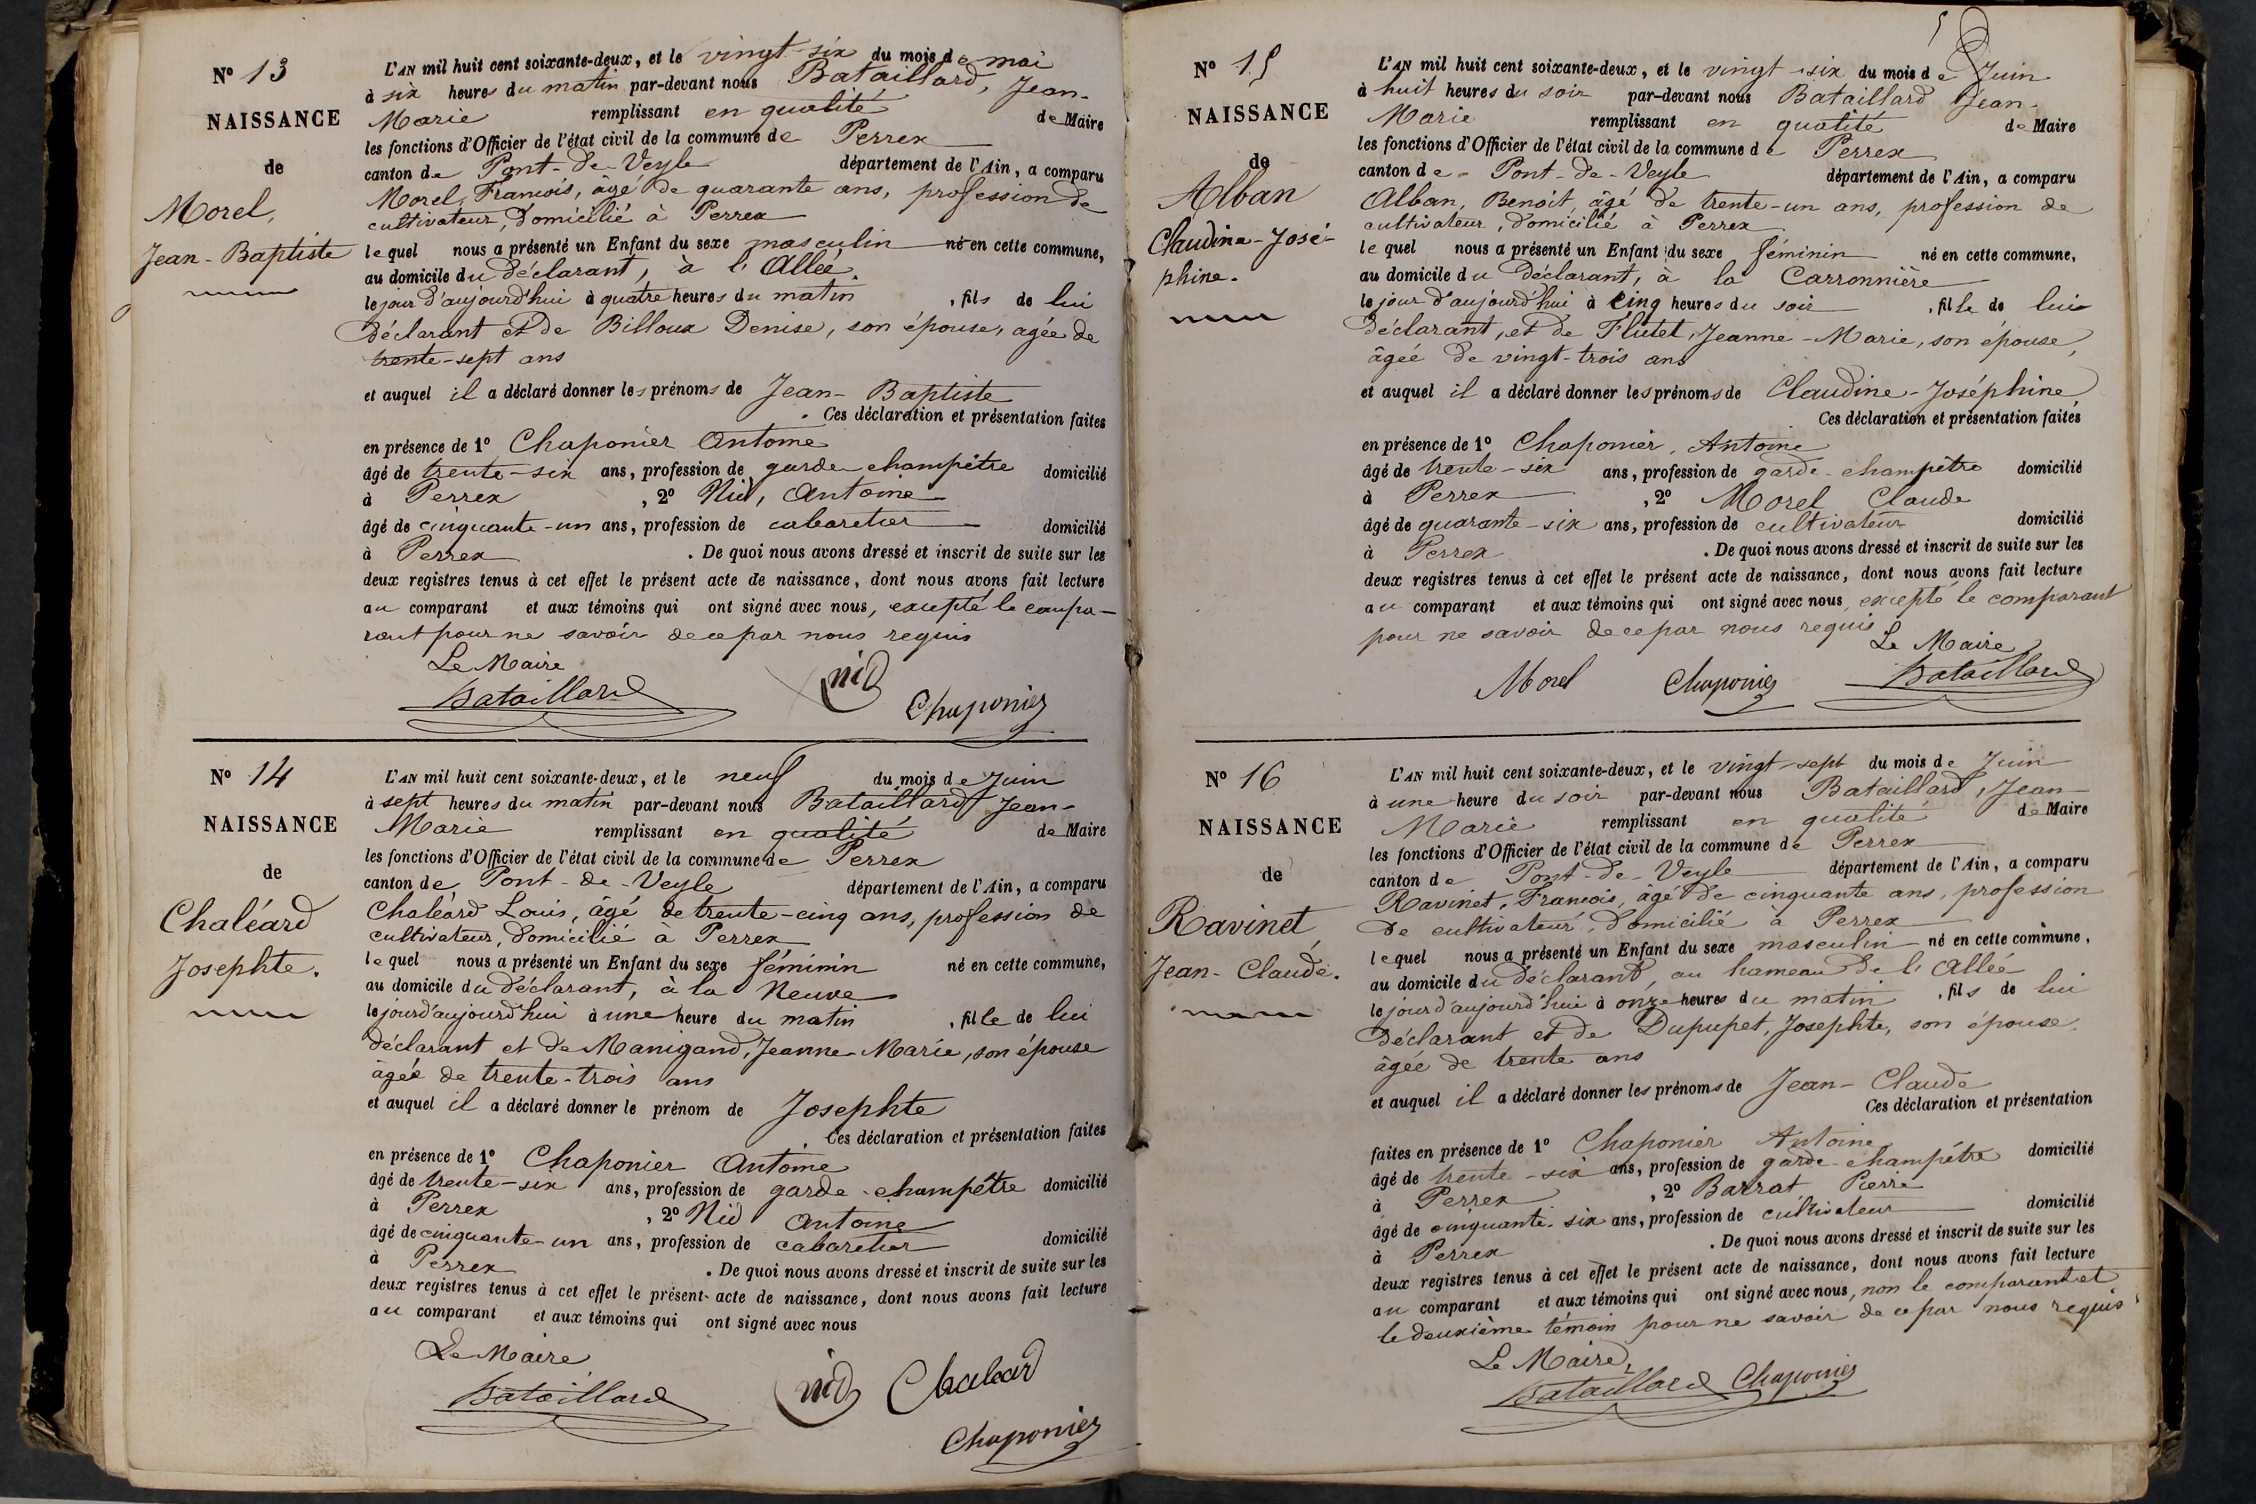 N° 13
NAISSANCE
de
Morel,
Jean-Baptiste
L'AN mil huit cent soixante-deux, et le vingt-six du mois de mai
à six heures du matin par-devant nous Bataillard, Jean-
Marie remplissant en qualité de Maire
les fonctions d'Officier de l'état civil de la commune de Perrex
canton de Pont-de-Veyle département de l'Ain, a comparu
Morel, François, âgé de quarante ans, profession de
cultivateur, domicilié à Perrex
lequel nous a présenté un Enfant du sexe masculin né en cette commune,
au domicile du déclarant, à l'Allée.
le jour d'aujourd'hui à quatre heures du matin, fils de lui
déclarant et de Billoux Denise, son épouse, agée de
trente-sept ans
et auquel il a déclaré donner les prénoms de Jean-Baptiste
. Ces déclaration et présentation faites
en présence de 1° Chaponier Antoine
âgé de trente-six ans, profession de garde-champêtre domicilié
à Perrex, 2° Nid, Antoine
âgé de cinquante-un ans, profession de cabaretier domicilié
à Perrex. De quoi nous avons dressé et inscrit de suite sur les
deux registres tenus à cet effet le présent acte de naissance, dont nous avons fait lecture
au comparant et aux témoins qui ont signé avec nous, excepté le compa-
rant pour ne savoir de ce par nous requis
Le Maire
Bataillard Nid
Chaponier
N° 14
NAISSANCE
de
Chaléard
Josephte.
L'AN mil huit cent soixante-deux, et le neuf du mois de Juin
à sept heures du matin par-devant nous Bataillard Jean-
Marie remplissant en qualité de Maire
les fonctions d'Officier de l'état civil de la commune de Perrex
canton de Pont-de-Veyle département de l'Ain, a comparu
Chaléard Louis, âgé de trente-cinq ans, profession de
cultivateur, domicilié à Perrex
lequel nous a présenté un Enfant du sexe féminin né en cette commune,
au domicile du déclarant, à la Neuve
le jour d'aujourd'hui à une heure du matin, fille de lui
déclarant et de Manigand, Jeanne-Marie, son épouse
âgée de trente-trois ans
et auquel il a déclaré donner le prénom de Josephte
Ces déclaration et présentation faites
en présence de 1° Chaponier Antoine
âgé de trente-six ans, profession de garde-champêtre domicilié
à Perrex, 2° Nid Antoine
âgé de cinquante-un ans, profession de cabaretier domicilié
à Perrex. De quoi nous avons dressé et inscrit de suite sur les
deux registres tenus à cet effet le présent acte de naissance, dont nous avons fait lecture
au comparant et aux témoins qui ont signé avec nous
Le Maire
Bataillard Nid Chaleard
Chaponier
N° 15
NAISSANCE
de
Alban
Claudine-José-
phine.
L'AN mil huit cent soixante-deux, et le vingt-six du mois de Juin
à huit heures du soir par-devant nous Bataillard Jean-
Marie remplissant en qualité de Maire
les fonctions d'Officier de l'état civil de la commune de Perrex
canton de Pont-de-Veyle département de l'Ain, a comparu
Alban, Benoît, âgé de trente-un ans, profession de
cultivateur, domicilié à Perrex
lequel nous a présenté un Enfant du sexe féminin né en cette commune,
au domicile du déclarant, à la Carronnière
le jour d'aujourd'hui à cinq heures du soir, fille de lui
déclarant, et de Flutet, Jeanne-Marie, son épouse,
âgée de vingt-trois ans
et auquel il a déclaré donner les prénoms de Claudine-Joséphine,
Ces déclaration et présentation faites
en présence de 1° Chaponier, Antoine
âgé de trente-six ans, profession de garde-champêtre domicilié
à Perrex, 2° Morel Claude
âgé de quarante-six ans, profession de cultivateur domicilié
à Perrex. De quoi nous avons dressé et inscrit de suite sur les
deux registres tenus à cet effet le présent acte de naissance, dont nous avons fait lecture
au comparant et aux témoins qui ont signé avec nous, excepté le comparant
pour ne savoir de ce par nous requis
Le Maire
Morel Chaponier Bataillard
N° 16
NAISSANCE
de
Ravinet,
Jean-Claude.
L'AN mil huit cent soixante-deux, et le vingt-sept du mois de Juin
à une heure du soir par-devant nous Bataillard, Jean-
Marie remplissant en qualité de Maire
les fonctions d'Officier de l'état civil de la commune de Perrex
canton de Pont-de-Veyle département de l'Ain, a comparu
Ravinet, François, âgé de cinquante ans, profession
de cultivateur, domicilié à Perrex
lequel nous a présenté un Enfant du sexe masculin né en cette commune,
au domicile du déclarant, au hameau de l'Allée
le jour d'aujourd'hui à onze heures du matin, fils de lui
déclarant et de Dupupet, Josephte, son épouse,
âgée de trente ans
et auquel il a déclaré donner les prénoms de Jean-Claude
Ces déclaration et présentation
faites en présence de 1° Chaponier Antoine
âgé de trente-six ans, profession de garde-champêtre domicilié
à Perrex, 2° Barrat Pierre
âgé de cinquante-six ans, profession de cultivateur domicilié
à Perrex. De quoi nous avons dressé et inscrit de suite sur les
deux registres tenus à cet effet le présent acte de naissance, dont nous avons fait lecture
au comparant et aux témoins qui ont signé avec nous, non le comparant et
le deuxième témoin pour ne savoir de ce par nous requis
Le Maire,
Bataillard Chaponier